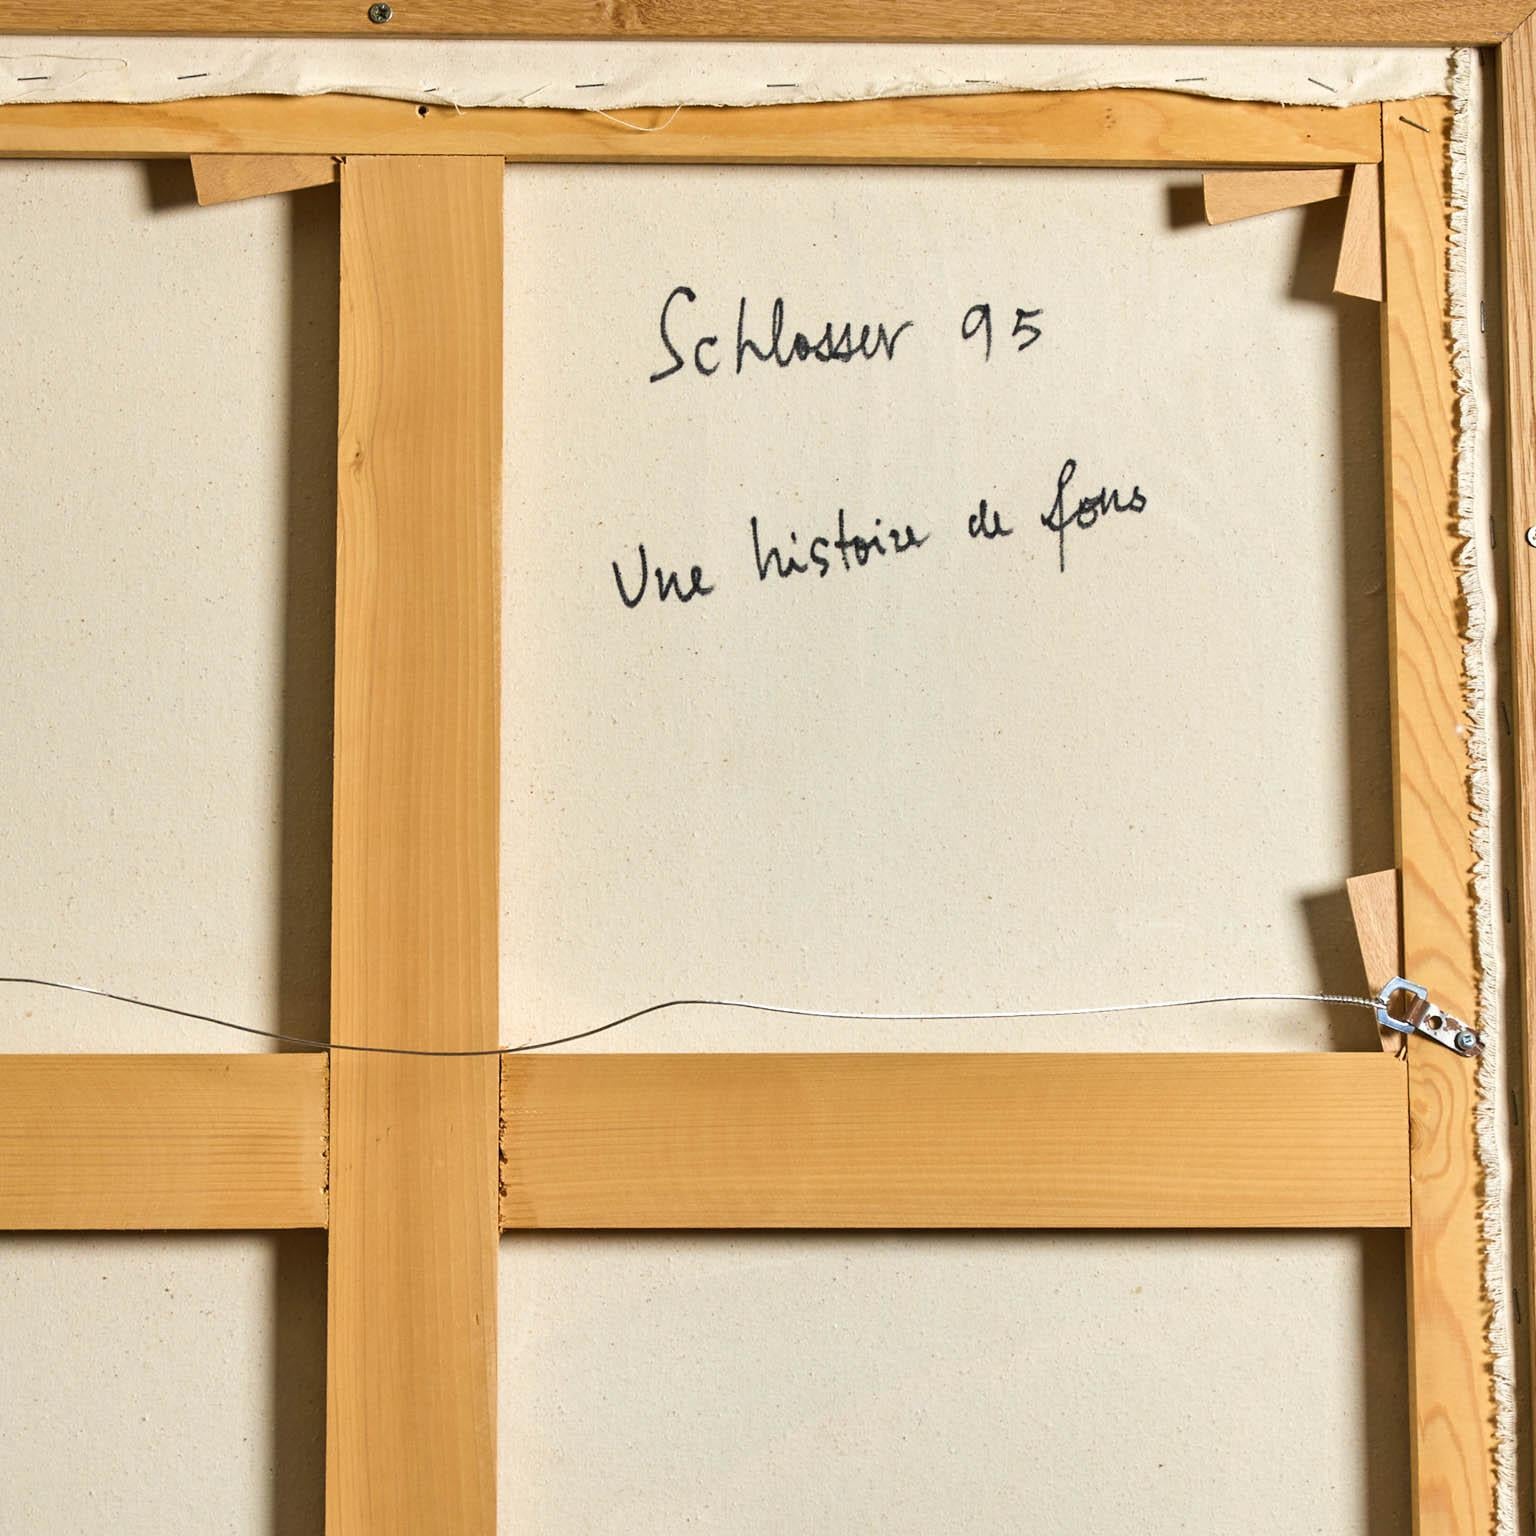 Schlosser 95
Une histoire de fous